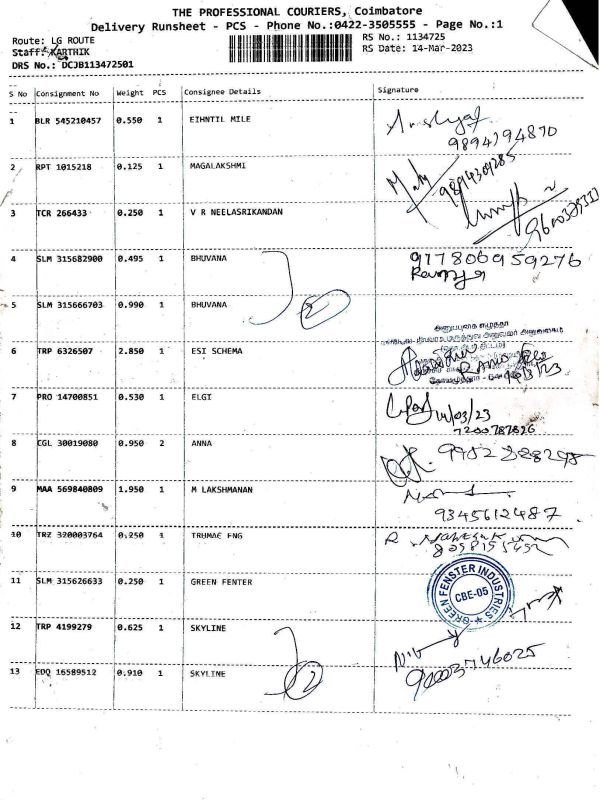 THE PROFESSIONAL COURIERS, Coimbatore
Delivery Runsheet - PCS - Phone No.:0422-3505555 - Page No.:1
Route: LG ROUTE
RS No.: 1134725
Staff: KARTHIK
RS Date: 14-Mar-2023
DRS No.: DCJB113472501
S No Consignment No Weight PCS Consignee Details Signature
1 BLR 545210457 0.550 1 EIHNTIL MILE
9894794870
2 RPT 1015218 0.125 1 MAGALAKSHMI
9894309285
3 TCR 266433 0.250 1 V R NEELASRIKANDAN
4 SLM 315682900 0.495 1 BHUVANA
917806959276
Ramya
5 SLM 315666703 0.990 1 BHUVANA
2
6 TRP 6326507 2.850 1 ESI SCHEMA
14/3/23
7 PRO 14700851 0.530 1 ELGI
14/03/23
7200787826
8 CGL 30019080 0.950 2 ANNA
9952288298
9 MAA 569840809 1.950 1 M LAKSHMANAN
9345612487
10 TRZ 320003764 0.250 1 TRUMAC ENG
11 SLM 315626633 0.250 1 GREEN FENTER
GREEN FENSTER INDUSTRIES
CBE-05
12 TRP 4199279 0.625 1 SKYLINE
13 EDQ 16589512 0.910 1 SKYLINE
2
90003746025